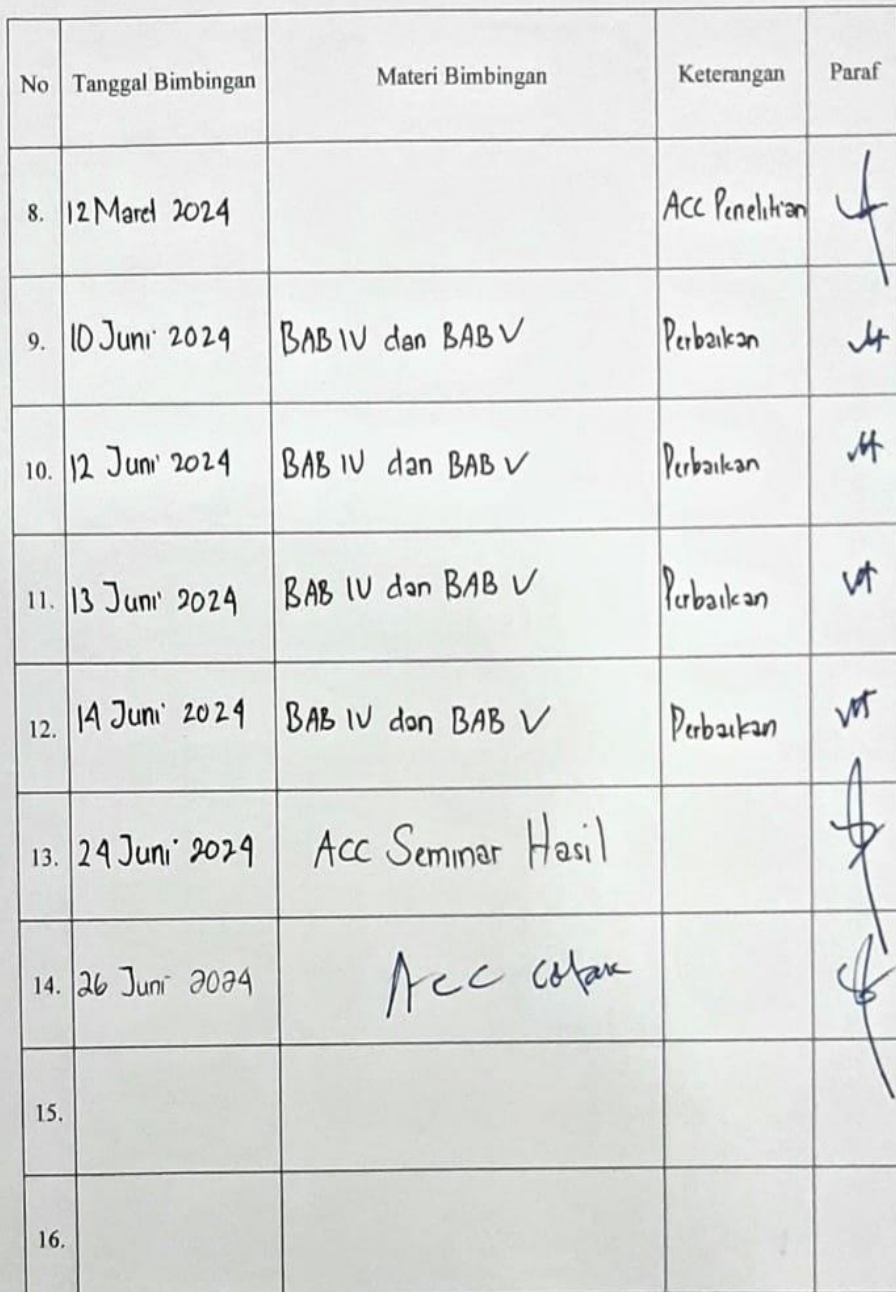 No Tanggal Bimbingan Materi Bimbingan Keterangan Paraf
8. 12 Maret 2024 ACC Penelitian
9. 10 Juni 2024 BAB IV dan BAB V Perbaikan
10. 12 Juni 2024 BAB IV dan BAB V Perbaikan
11. 13 Juni 2024 BAB IV dan BAB V Perbaikan
12. 14 Juni 2024 BAB IV dan BAB V Perbaikan
13. 24 Juni 2024 ACC Seminar Hasil
14. 26 Juni 2024 Acc cetak
15.
16.